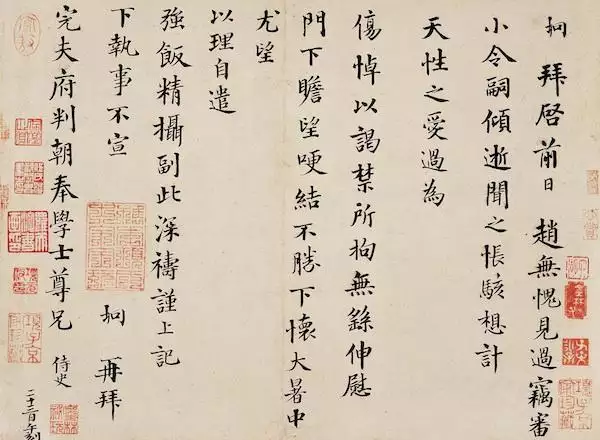 坰 拜啓前日 趙無愧見過竊審
小令嗣傾逝聞之悵駭想計
天性之愛過為
傷悼以謁禁所拘無繇伸慰
門下瞻望哽結不勝下懷大暑中
尤望
以理自遣
強飯精攝副此深禱謹上記
下執事不宣
坰 再拜
完夫府判朝奉學士尊兄 侍史
二十三日午刻